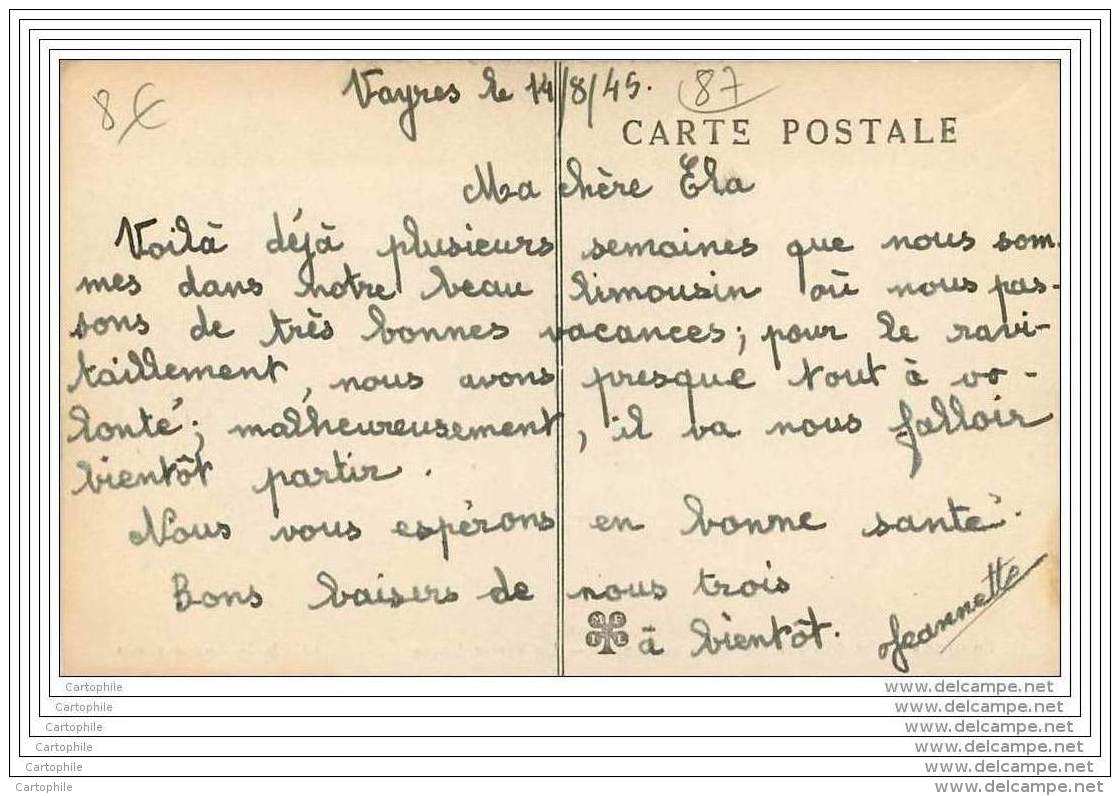 8€
Vayres le 14/8/45.
87
CARTE POSTALE
Ma chère Ela
Voilà déjà plusieurs semaines que nous som-
mes dans notre beau limousin où nous pas-
sons de très bonnes vacances; pour le ravi-
taillement, nous avons presque tout à vo-
lonté; malheureusement, il va nous falloir
bientôt partir.
Nous vous espérons en bonne santé.
Bons baisers de nous trois
à bientôt.
Jeannette
Cartophile www.delcampe.net
Cartophile www.delcampe.net
Cartophile www.delcampe.net
Cartophile www.delcampe.net
Cartophile www.delcampe.net
Cartophile www.delcampe.net